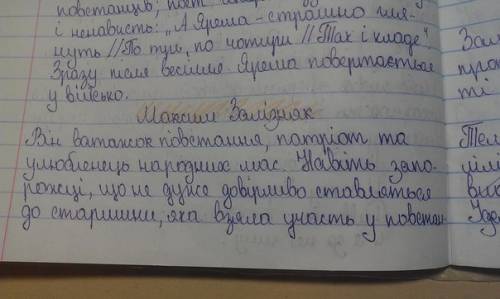 повстанців, поет
і ненависть: „А Ярема - страшно гля-
нуть // По три, по чотири // Так і кладе".
Зразу після весілля Ярема повертається
у військо.
Максим Залізняк
Він ватажок повстання, патріот та
улюбленець народних мас. Навіть запо-
рожці, що не дуже довірливо ставляться
до старшини, яка взяла участь у повстан-
Зал
прог
ті
Тел